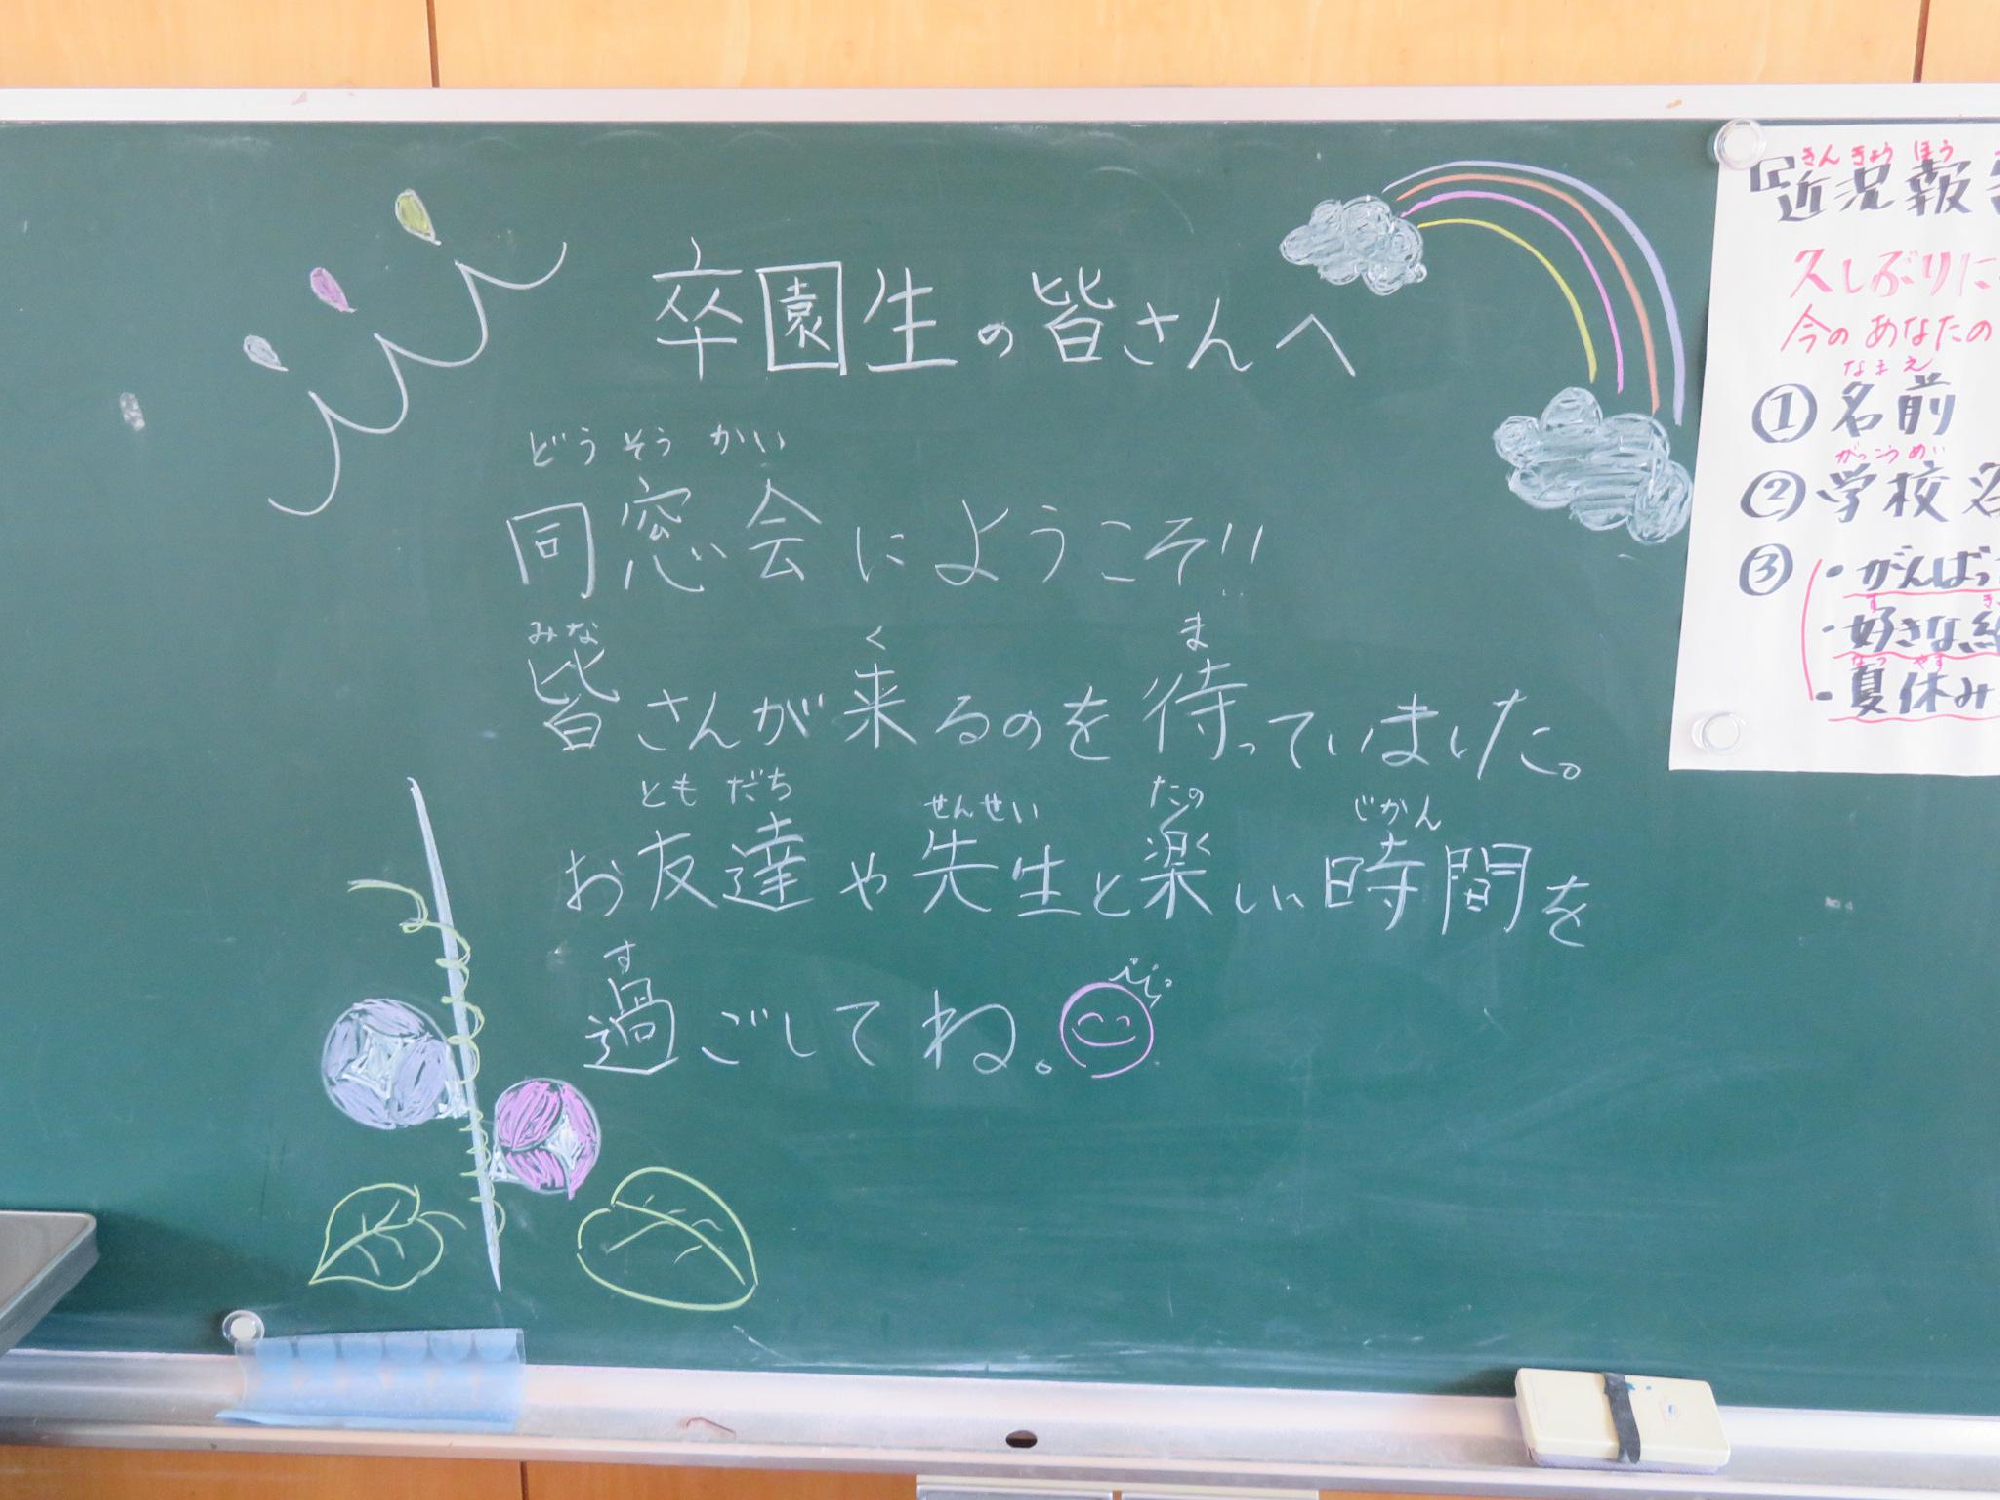 卒園生の皆さんへ
どうそうかい
同窓会にようこそ!!
みな く ま
皆さんが来るのを待っていました。
ともだち せんせい たの じかん
お友達や先生と楽しい時間を
す
過ごしてね。
きんきょうほう
『近況報
久しぶりに
今のあなたの
なまえ
①名前
がっこうめい
②学校名
③・がんばっ
す
・好きな
なつやす
・夏休み